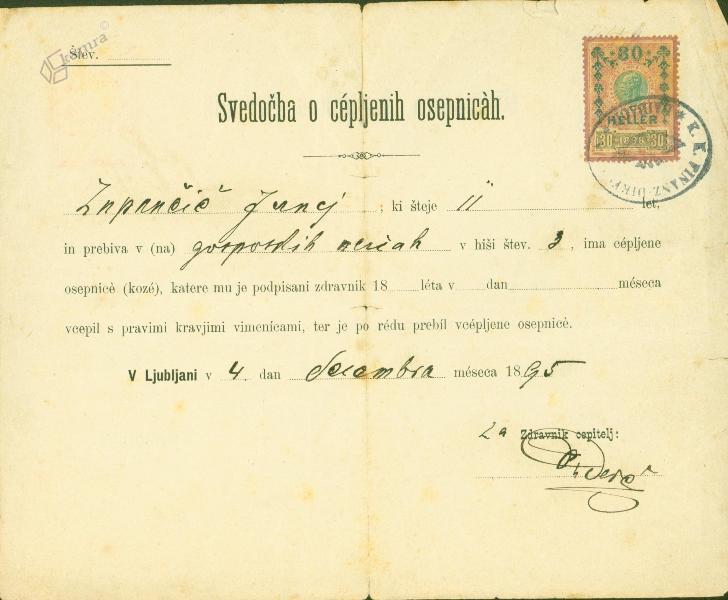 kamra ©
Štev.
80
HELLER
30 1898 30
K. K. FINANZ-DIR
Svedočba o cépljenih osepnicàh.
Zupančič Jernej ; ki šteje 11 let,
in prebiva v (na) gosposkih ulicah v hiši štev. 3 , ima cépljene
osepnicè (kozé), katere mu je podpisani zdravnik 18 léta v dan méseca
vcepil s pravimi kravjimi vimenícami, ter je po rédu prebíl vcépljene osepnicè.
V Ljubljani v 4. dan decembra méseca 1895
Za Zdravnik cepitelj: